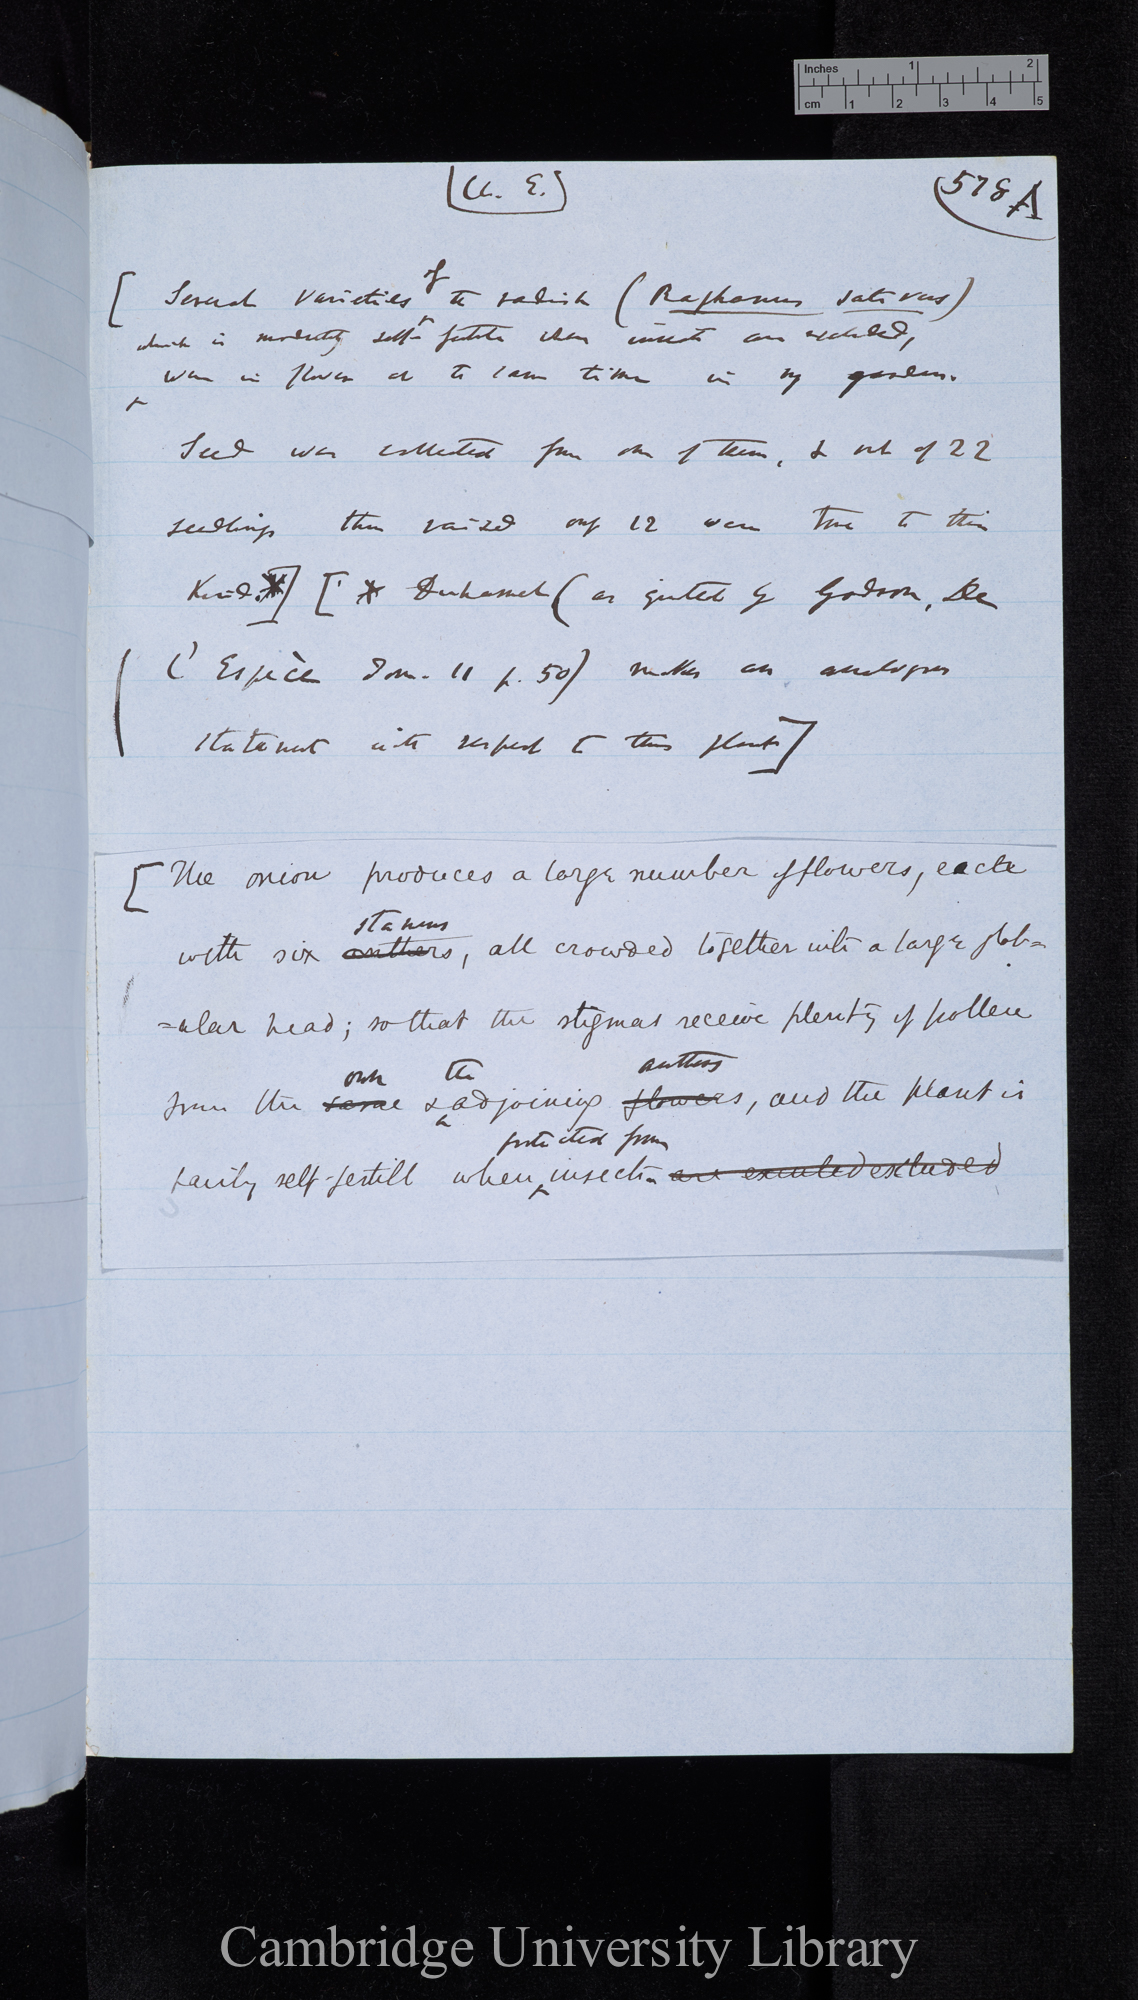 Inches 1 2
cm 1 2 3 4 5
578 A
[ Several varieties of the radish (Raphanus sativus)
which is moderately self-fertile when insects are excluded,
were in flower at the same time in my garden.
Seed was collected from one of them, & out of 22
seedlings thus raised only 12 were true to their
Kind.*] [* Duhamel (as quoted by Godron, De
l'Espèce Tom. II p. 50) makes an analogous
statement with respect to this plant]
[The onion produces a large number of flowers, each
stamens
with six anthers, all crowded together into a large glob=
=ular head; so that the stigmas receive plenty of pollen
own the anthers
from the same & adjoining flowers, and the plant is
protected from
fairly self-fertill when insects are excluded